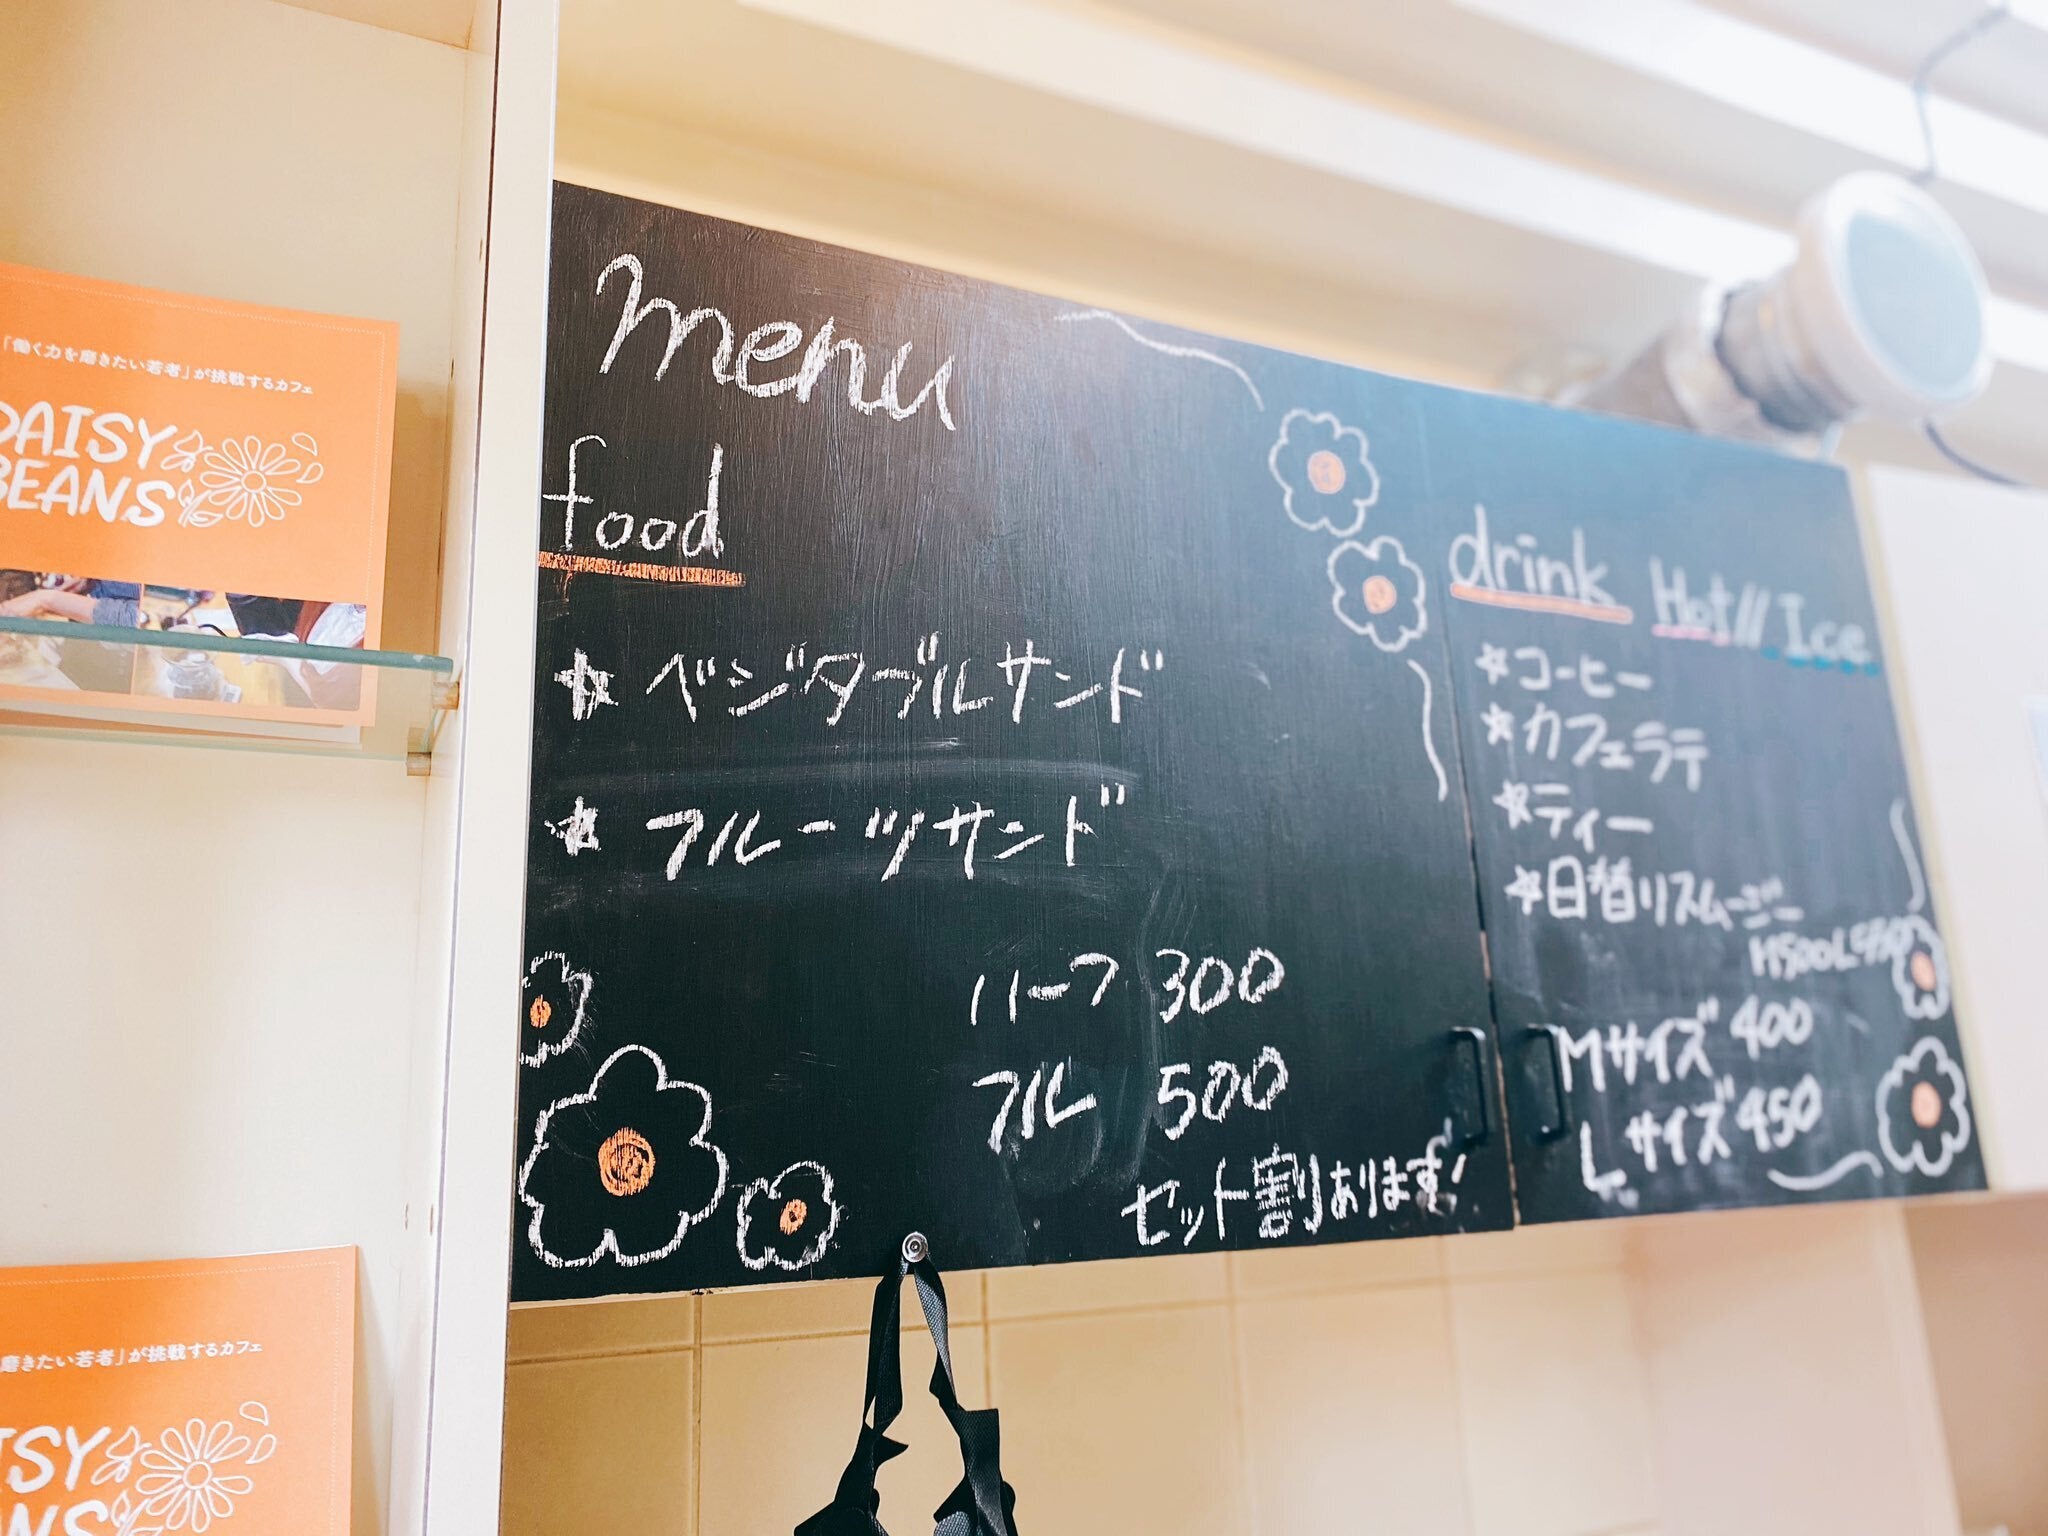 「働く力を磨きたい若者」が挑戦するカフェ
DAISY
BEANS
磨きたい若者」が挑戦するカフェ
menu
food
☆ ベジタブルサンド
☆ フルーツサンド
ハーフ 300
フル 500
セット割りあります!
drink Hot// Ice
☆コーヒー
☆カフェラテ
☆ティー
☆日替りスムージー
Mサイズ 400
Lサイズ 450